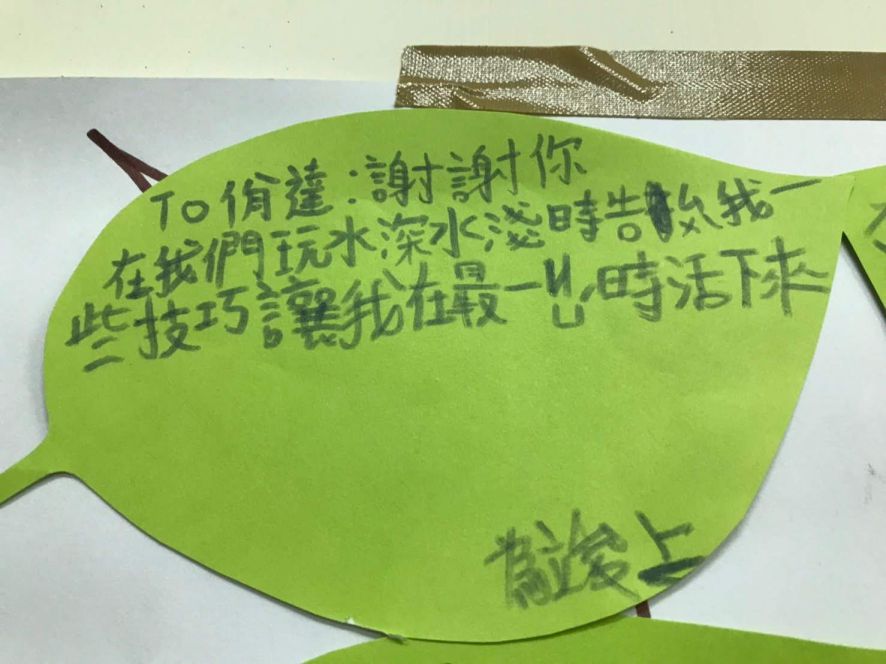 To 佾達:謝謝你
在我們玩水深水淺時告我一
些技巧讓我在最一時活下來
為竣上